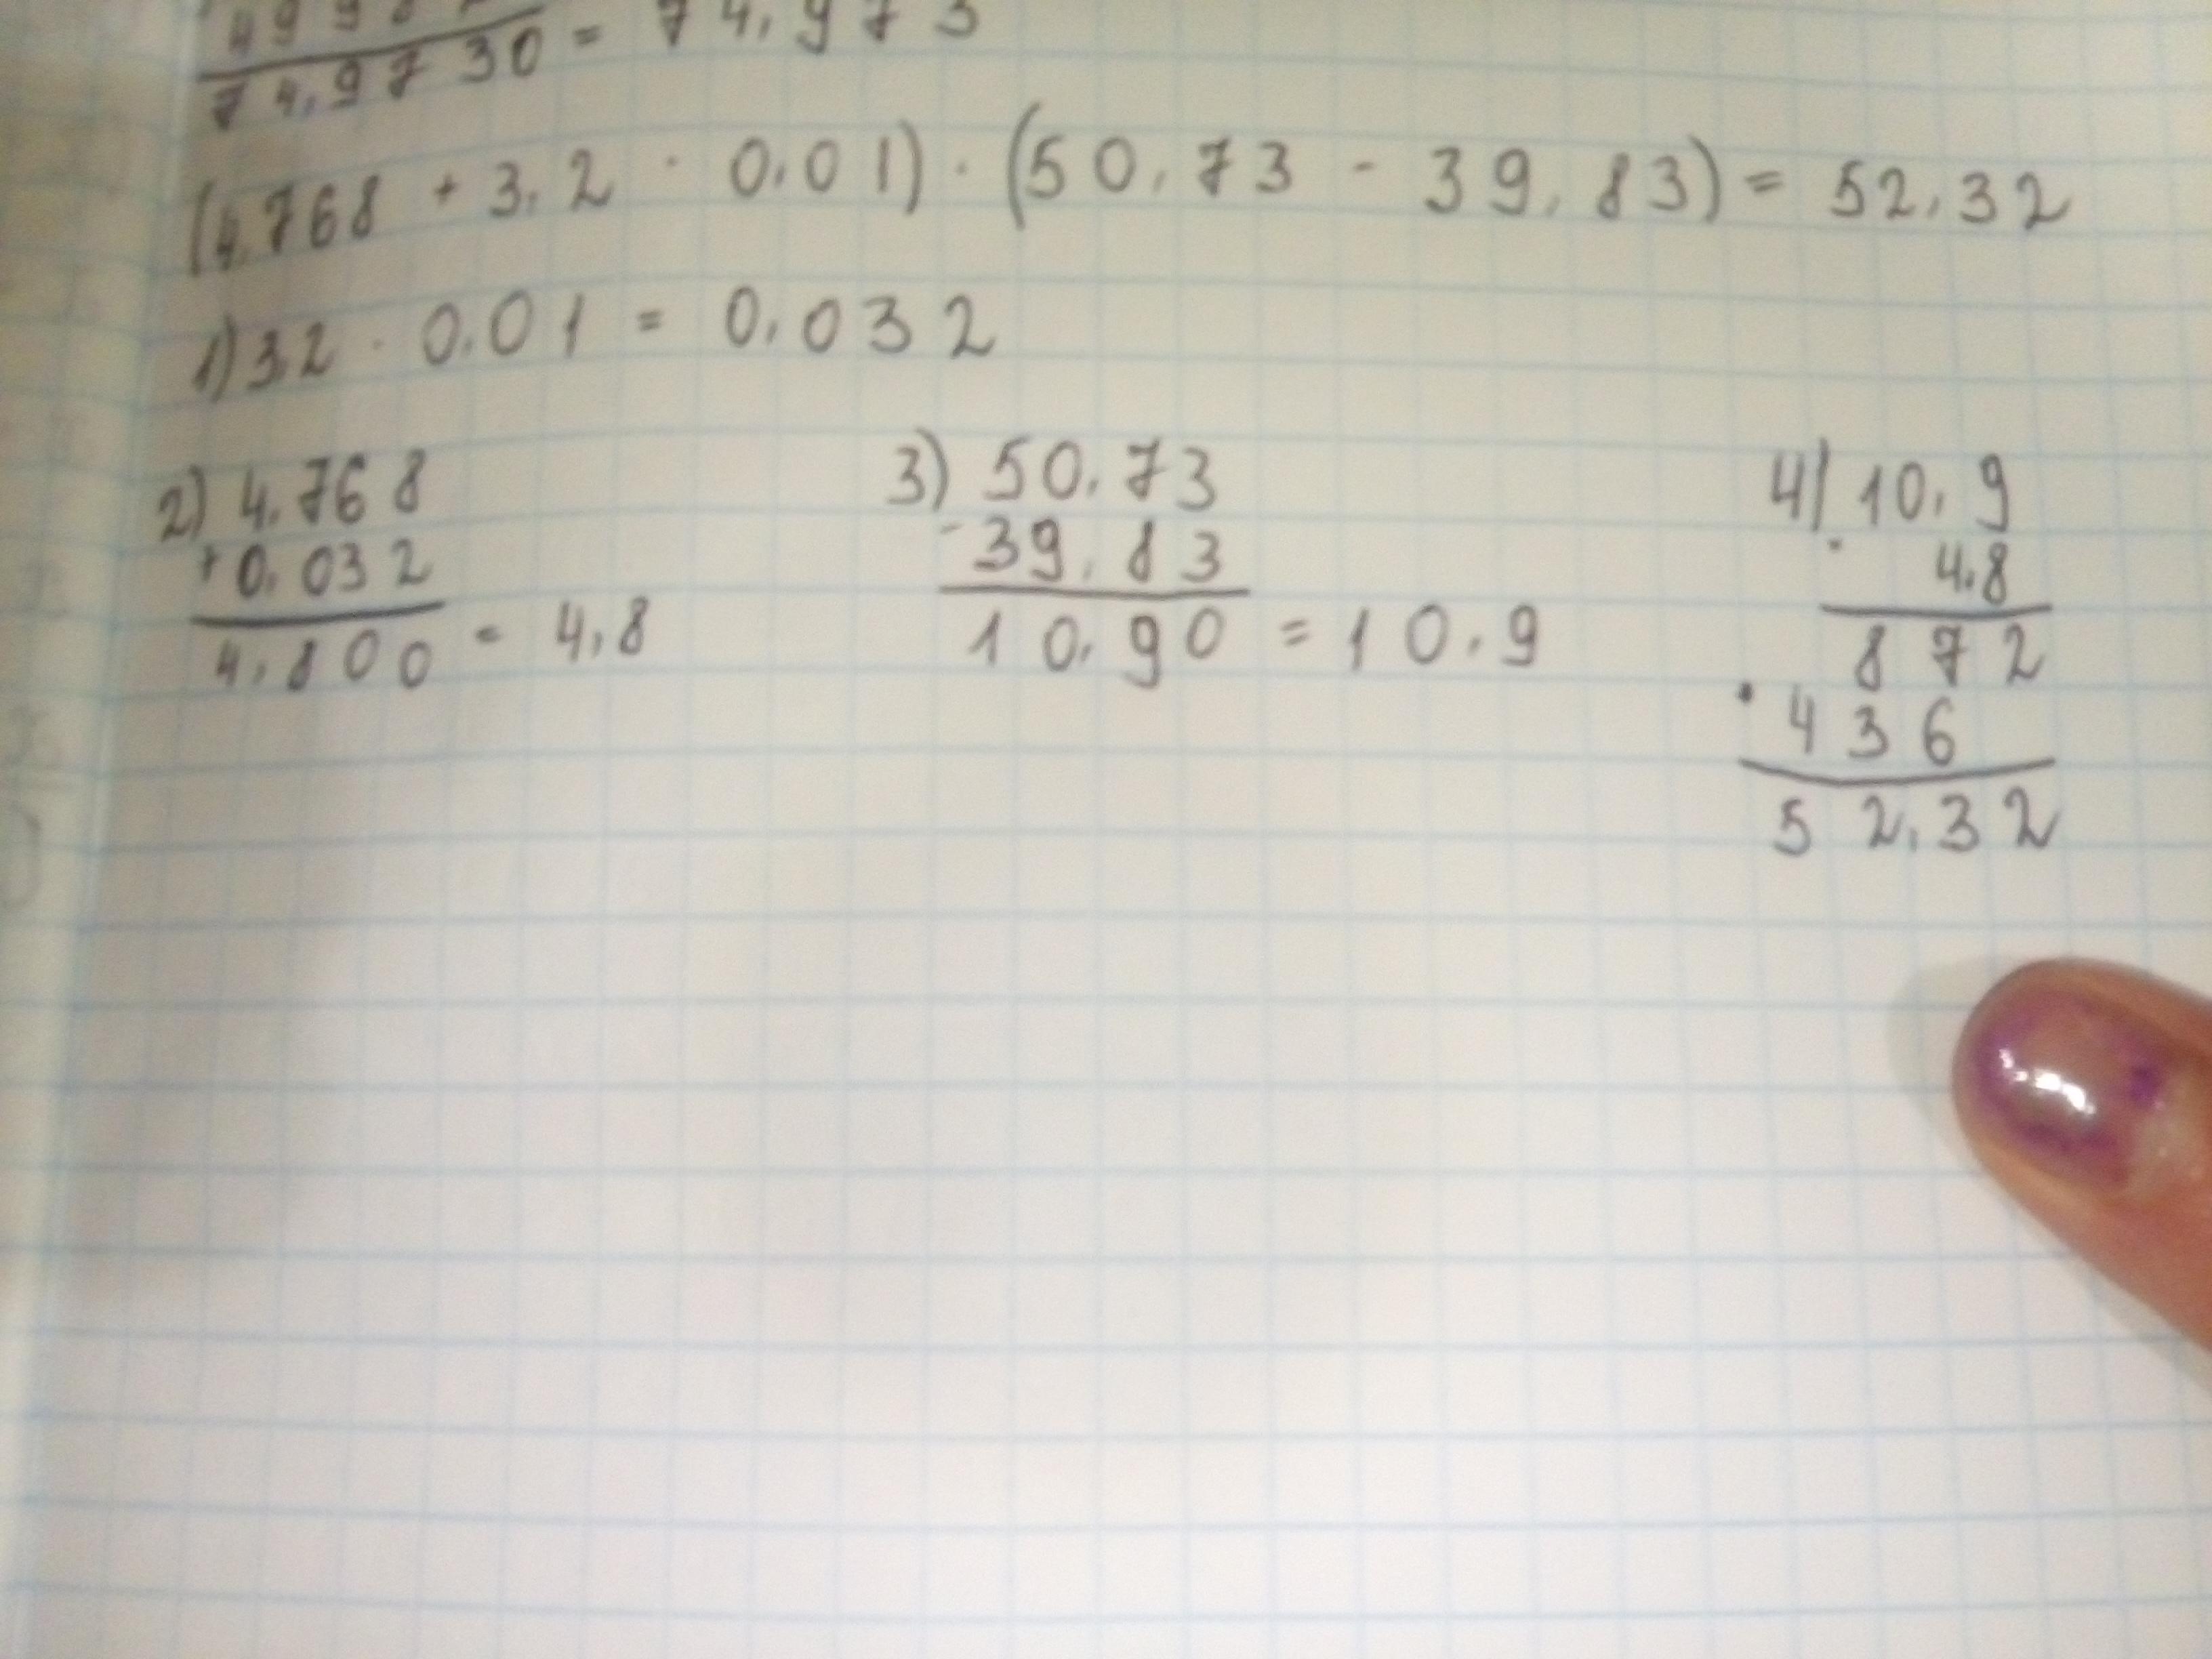 74,9730 = 74,973
(4,768 + 3,2 · 0,01) · (50,73 - 39,83) = 52,32
1) 3,2 · 0,01 = 0,032
2) 4,768
+ 0,032
4,800 = 4,8
3) 50,73
- 39,83
10,90 = 10,9
4) 10,9
· 4,8
872
· 436
52,32